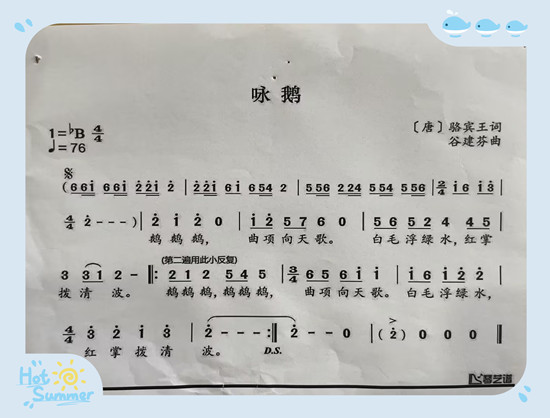 咏 鹅
1=♭B 4/4
♩=76
〔唐〕骆宾王词
谷建芬曲
(6 6 i 6 6 i 2 2 i 2 | 2 2 i 6 i 6 5 4 2 | 5 5 6 2 2 4 5 5 4 5 5 6 | 2/4 i 6 i 3
4/4 2 - - - ) | 2 i 2 0 | i 2 5 7 6 0 | 5 6 5 2 4 4 5 |
鹅鹅鹅， 曲项向天歌。 白毛浮绿水，红掌
(第二遍用此小反复)
3 3 1 2 - ‖: 2 1 2 5 4 5 | 3/4 6 5 6 i i | i 6 5 6 i |
拨清波。 鹅鹅鹅，鹅鹅鹅， 曲项向天歌。白毛浮绿水，
4/4 3 2 i 3 | 2 - - - :‖ 2 - - 0 | (2) 0 0 0 ‖
红掌拨清 波。 D.S.
琴艺谱
Hot
Summer